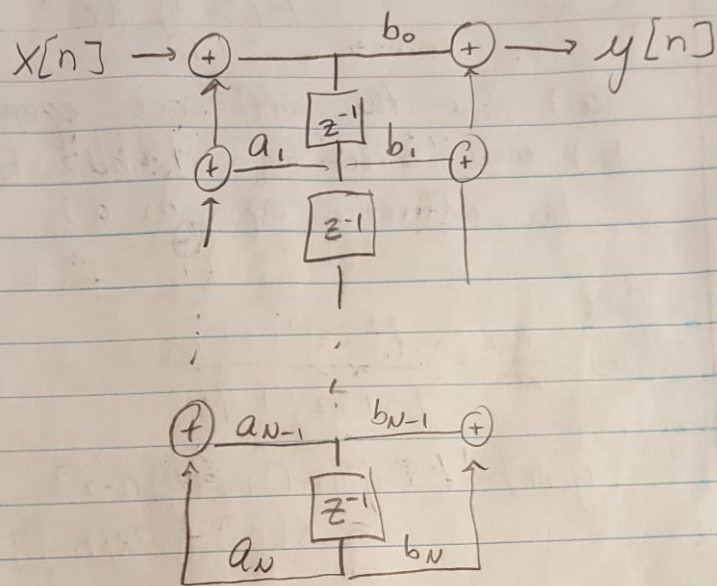 x[n] → + b₀ + → y[n]
z⁻¹
+ a₁ b₁ +
z⁻¹
+ a_{N-1} b_{N-1} +
z⁻¹
a_N b_N